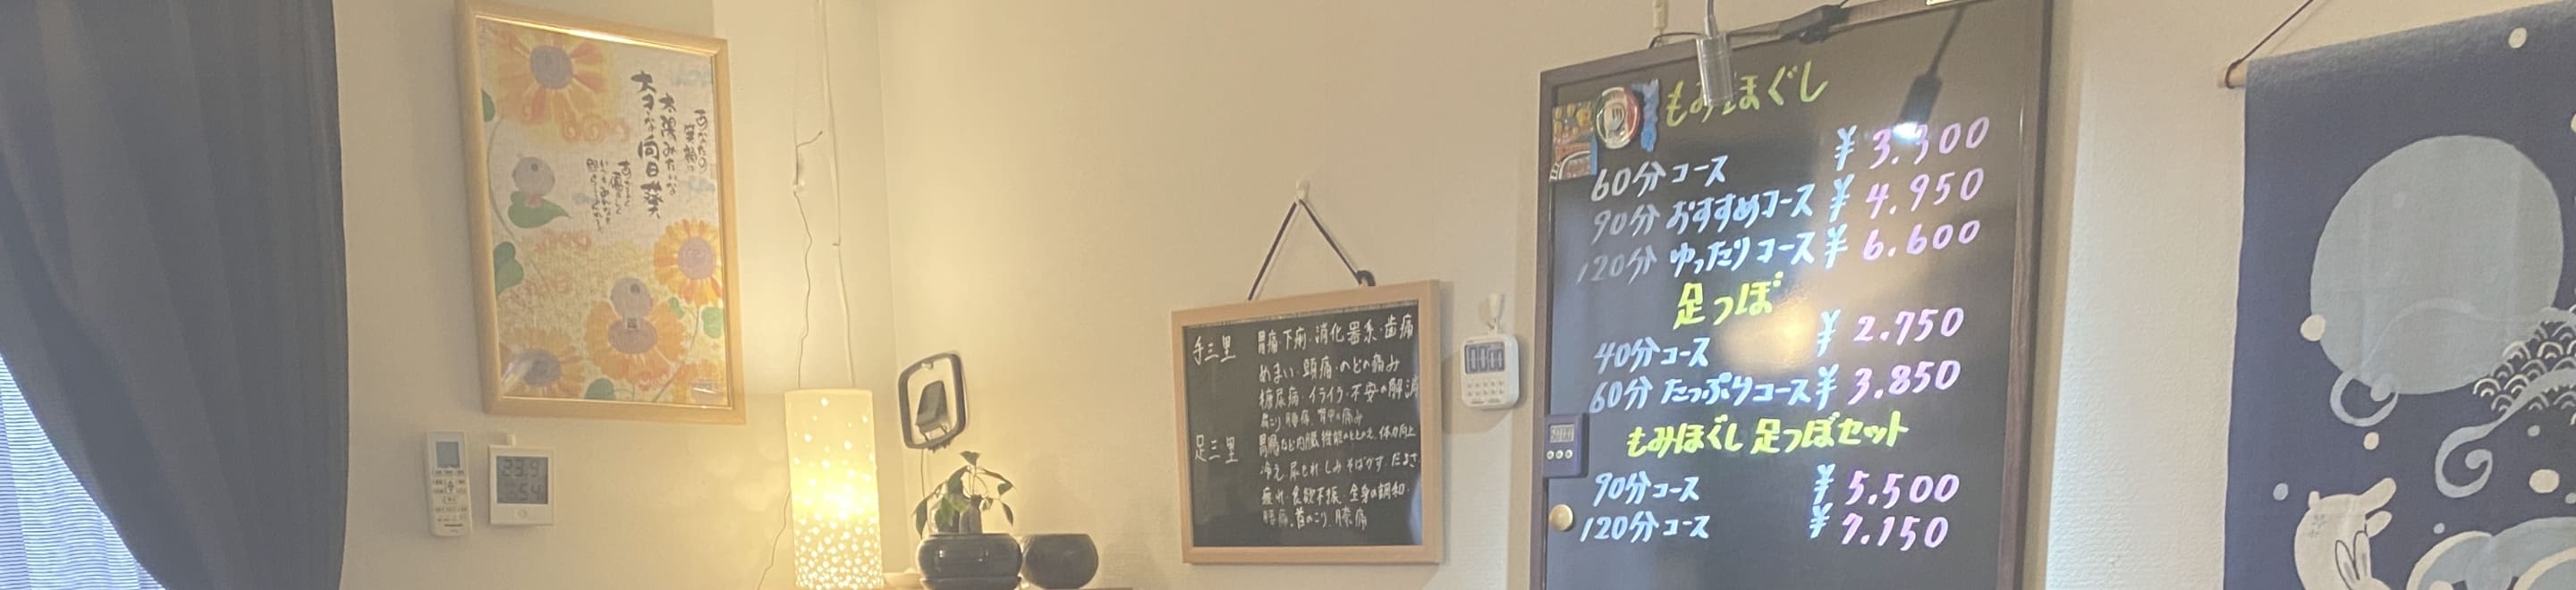 あなたの
笑顔は
太陽みたいな
大きな向日葵
23.9
54
手三里 胃痛・下痢・消化器系・歯痛
めまい・頭痛・のどの痛み
糖尿病・イライラ・不安の解消
肩こり 腰痛 背中の痛み
足三里 胃腸など内臓機能のととのえ、体力向上
冷え、尿もれ しみ そばかす だるさ
疲れ、食欲不振、全身の調和
腰痛、首のこり、膝痛
もみほぐし
60分コース ¥3.300
90分 おすすめコース ¥4.950
120分 ゆったりコース ¥6.600
足つぼ
40分コース ¥2.750
60分 たっぷりコース ¥3.850
もみほぐし 足つぼセット
90分コース ¥5.500
120分コース ¥7.150